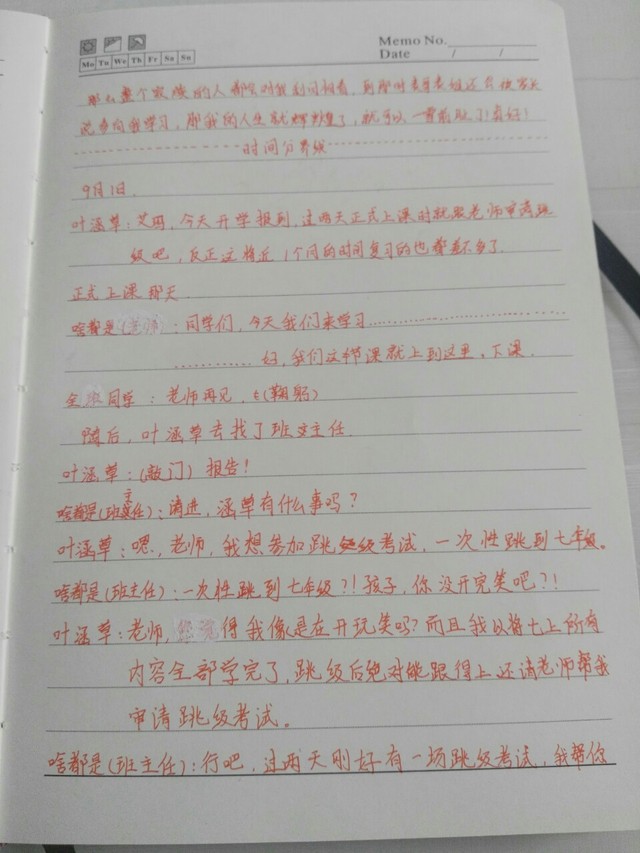 Memo No.
Mo Tu We Th Fr Sa Su
Date / /
那么整个家族的人都会对我刮目相看，到那时表哥表姐还会被家长
说多向我学习，那我的人生就辉煌了，就可以一雪前耻了！真好！
时间分界线
9月1日.
叶涵草：艾玛，今天开学报到，过两天正式上课时就跟老师审请跳
级吧，反正这将近1个月的时间复习的也都差不多了.
正式上课那天.
啥都是(老师)：同学们，今天我们来学习……………………
…………好，我们这节课就上到这里。下课.
全班同学：老师再见，(鞠躬)
随后，叶涵草去找了班主任.
叶涵草：(敲门) 报告！
啥都是(班主任)：请进，涵草有什么事吗？
叶涵草：嗯，老师，我想参加跳级考试，一次性跳到七年级。
啥都是(班主任)：一次性跳到七年级？！孩子，你没开完笑吧？！
叶涵草：老师，您觉得我像是在开玩笑吗？而且我以将七上所有
内容全部学完了，跳级后绝对能跟得上还请老师帮我
审请跳级考试。
啥都是(班主任)：行吧，过两天刚好有一场跳级考试，我帮你